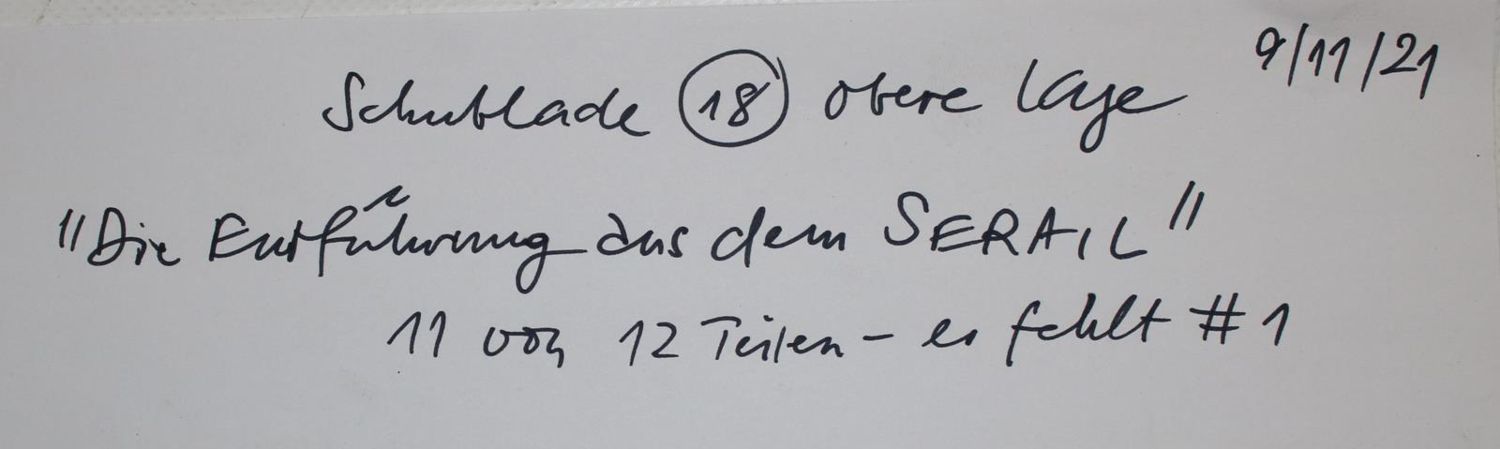 9/11/21
Schublade 18 obere Lage
"Die Entführung aus dem SERAIL"
11 von 12 Teilen - es fehlt #1